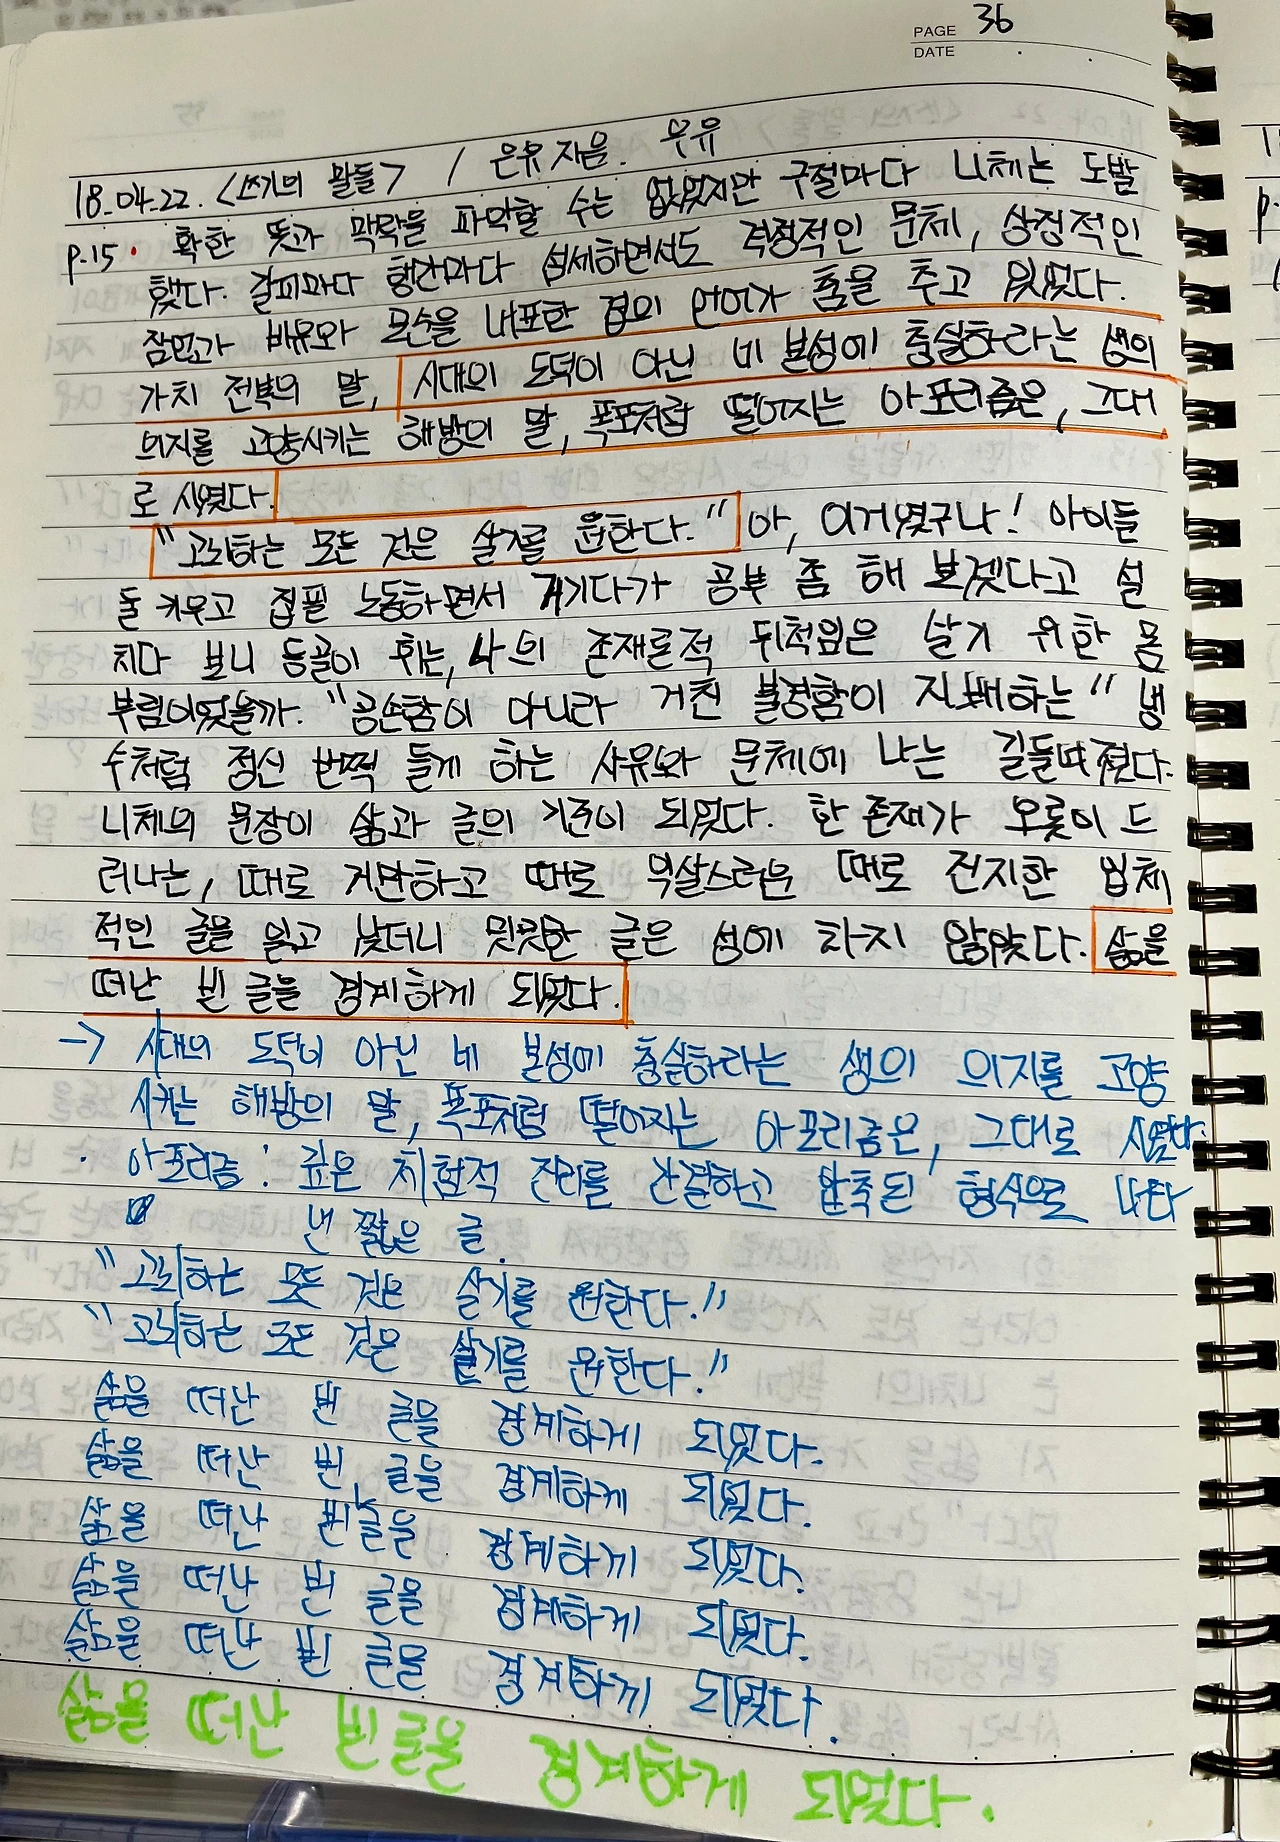 PAGE 36
DATE
18.04.22. <쓰기의 말들> / 은유 지음. 유유
p.15 · 확한 뜻과 맥락을 파악할 수는 없었지만 구절마다 니체는 도발
했다. 갈피마다 행간마다 섬세하면서도 격정적인 문체, 상징적인
잠언과 비유와 모순을 내포한 겹의 언어가 춤을 추고 있었다.
가치 전복의 말, 시대의 도덕이 아닌 네 본성에 충실하라는 생의
의지를 고양시키는 해방의 말, 폭포처럼 떨어지는 아포리즘은, 그대
로 시였다.
"고뇌하는 모든 것은 살기를 원한다." 아, 이거였구나! 아이들
둘 키우고 집필 노동하면서 거기다가 공부 좀 해 보겠다고 설
치다 보니 등골이 휘는, 나의 존재론적 뒤척임은 살기 위한 몸
부림이었을까. "공손함이 아니라 거친 불경함이 지배하는" 냉
수처럼 정신 번쩍 들게 하는 사유와 문체에 나는 길들여졌다.
니체의 문장이 삶과 글의 기준이 되었다. 한 존재가 오롯이 드
러나는, 때로 거만하고 때로 익살스러운 때로 진지한 입체
적인 글을 읽고 났더니 밋밋한 글은 성에 차지 않았다. 삶을
떠난 빈 글을 경계하게 되었다.
-> 시대의 도덕이 아닌 네 본성에 충실하라는 생의 의지를 고양
시키는 해방의 말, 폭포처럼 떨어지는 아포리즘은, 그대로 시였다.
· 아포리즘 : 깊은 체험적 진리를 간결하고 압축된 형식으로 나타
낸 짧은 글.
"고뇌하는 모든 것은 살기를 원한다."
"고뇌하는 모든 것은 살기를 원한다."
삶을 떠난 빈 글을 경계하게 되었다.
삶을 떠난 빈 글을 경계하게 되었다.
삶을 떠난 빈 글을 경계하게 되었다.
삶을 떠난 빈 글을 경계하게 되었다.
삶을 떠난 빈 글을 경계하게 되었다.
삶을 떠난 빈 글을 경계하게 되었다.